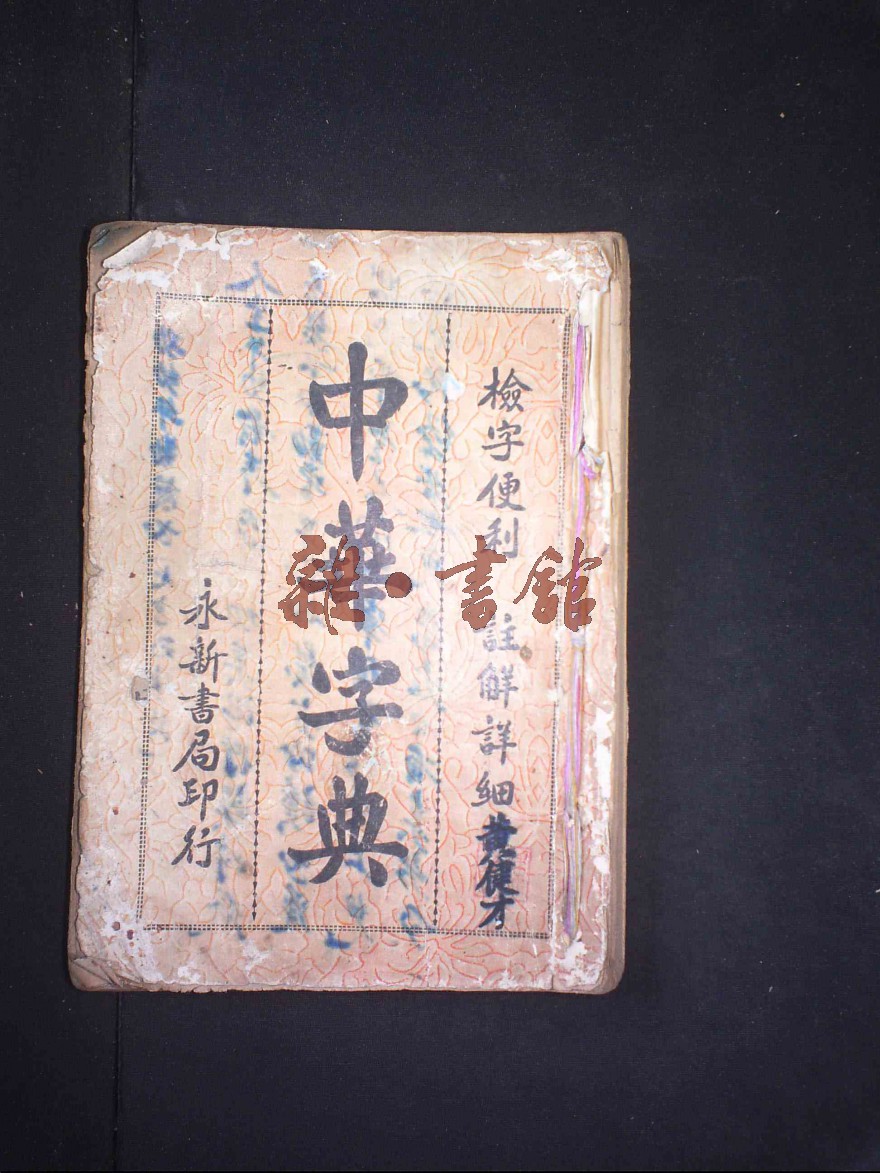 檢字便利 註解詳細
中華字典
永新書局印行
雜·書館